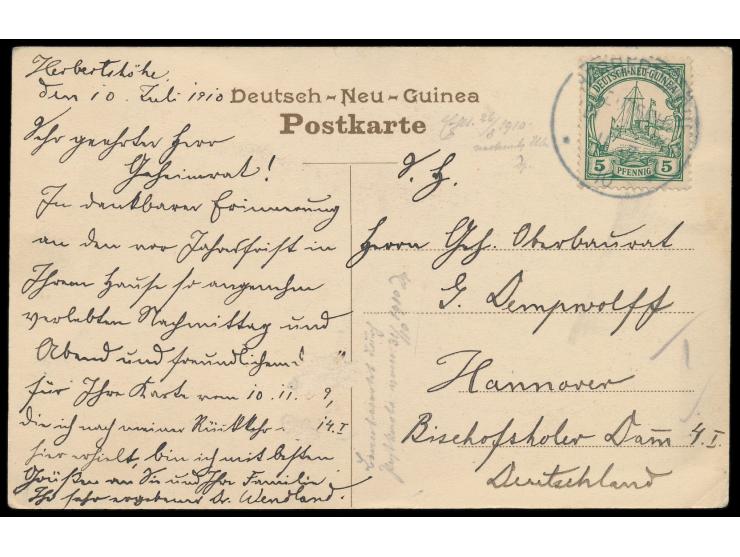 Herbertshöhe.
den 10. Juli 1910
Deutsch-Neu-Guinea
Postkarte
Sehr geehrter Herr
Geheimrat!
In dankbarer Erinnerung
an den vor Jahresfrist in
Ihrem Hause so angenehm
verlebten Nachmittag und
Abend und freundlichem
für Ihre Karte vom 10. 11. 9,
die ich nach meiner Rückkehr
hier erhielt, bin ich mit besten
Grüßen an Sie und Ihre Familie
Ihr sehr ergebener Dr. Wendland.
14. I
1910
S. H.
Herrn Geh. Oberbaurat
G. Dempwolff
Hannover
Bischofsholer Dam̄ 4. I.
Deutschland
DEUTSCH-NEU-GUINEA
5 PFENNIG 5